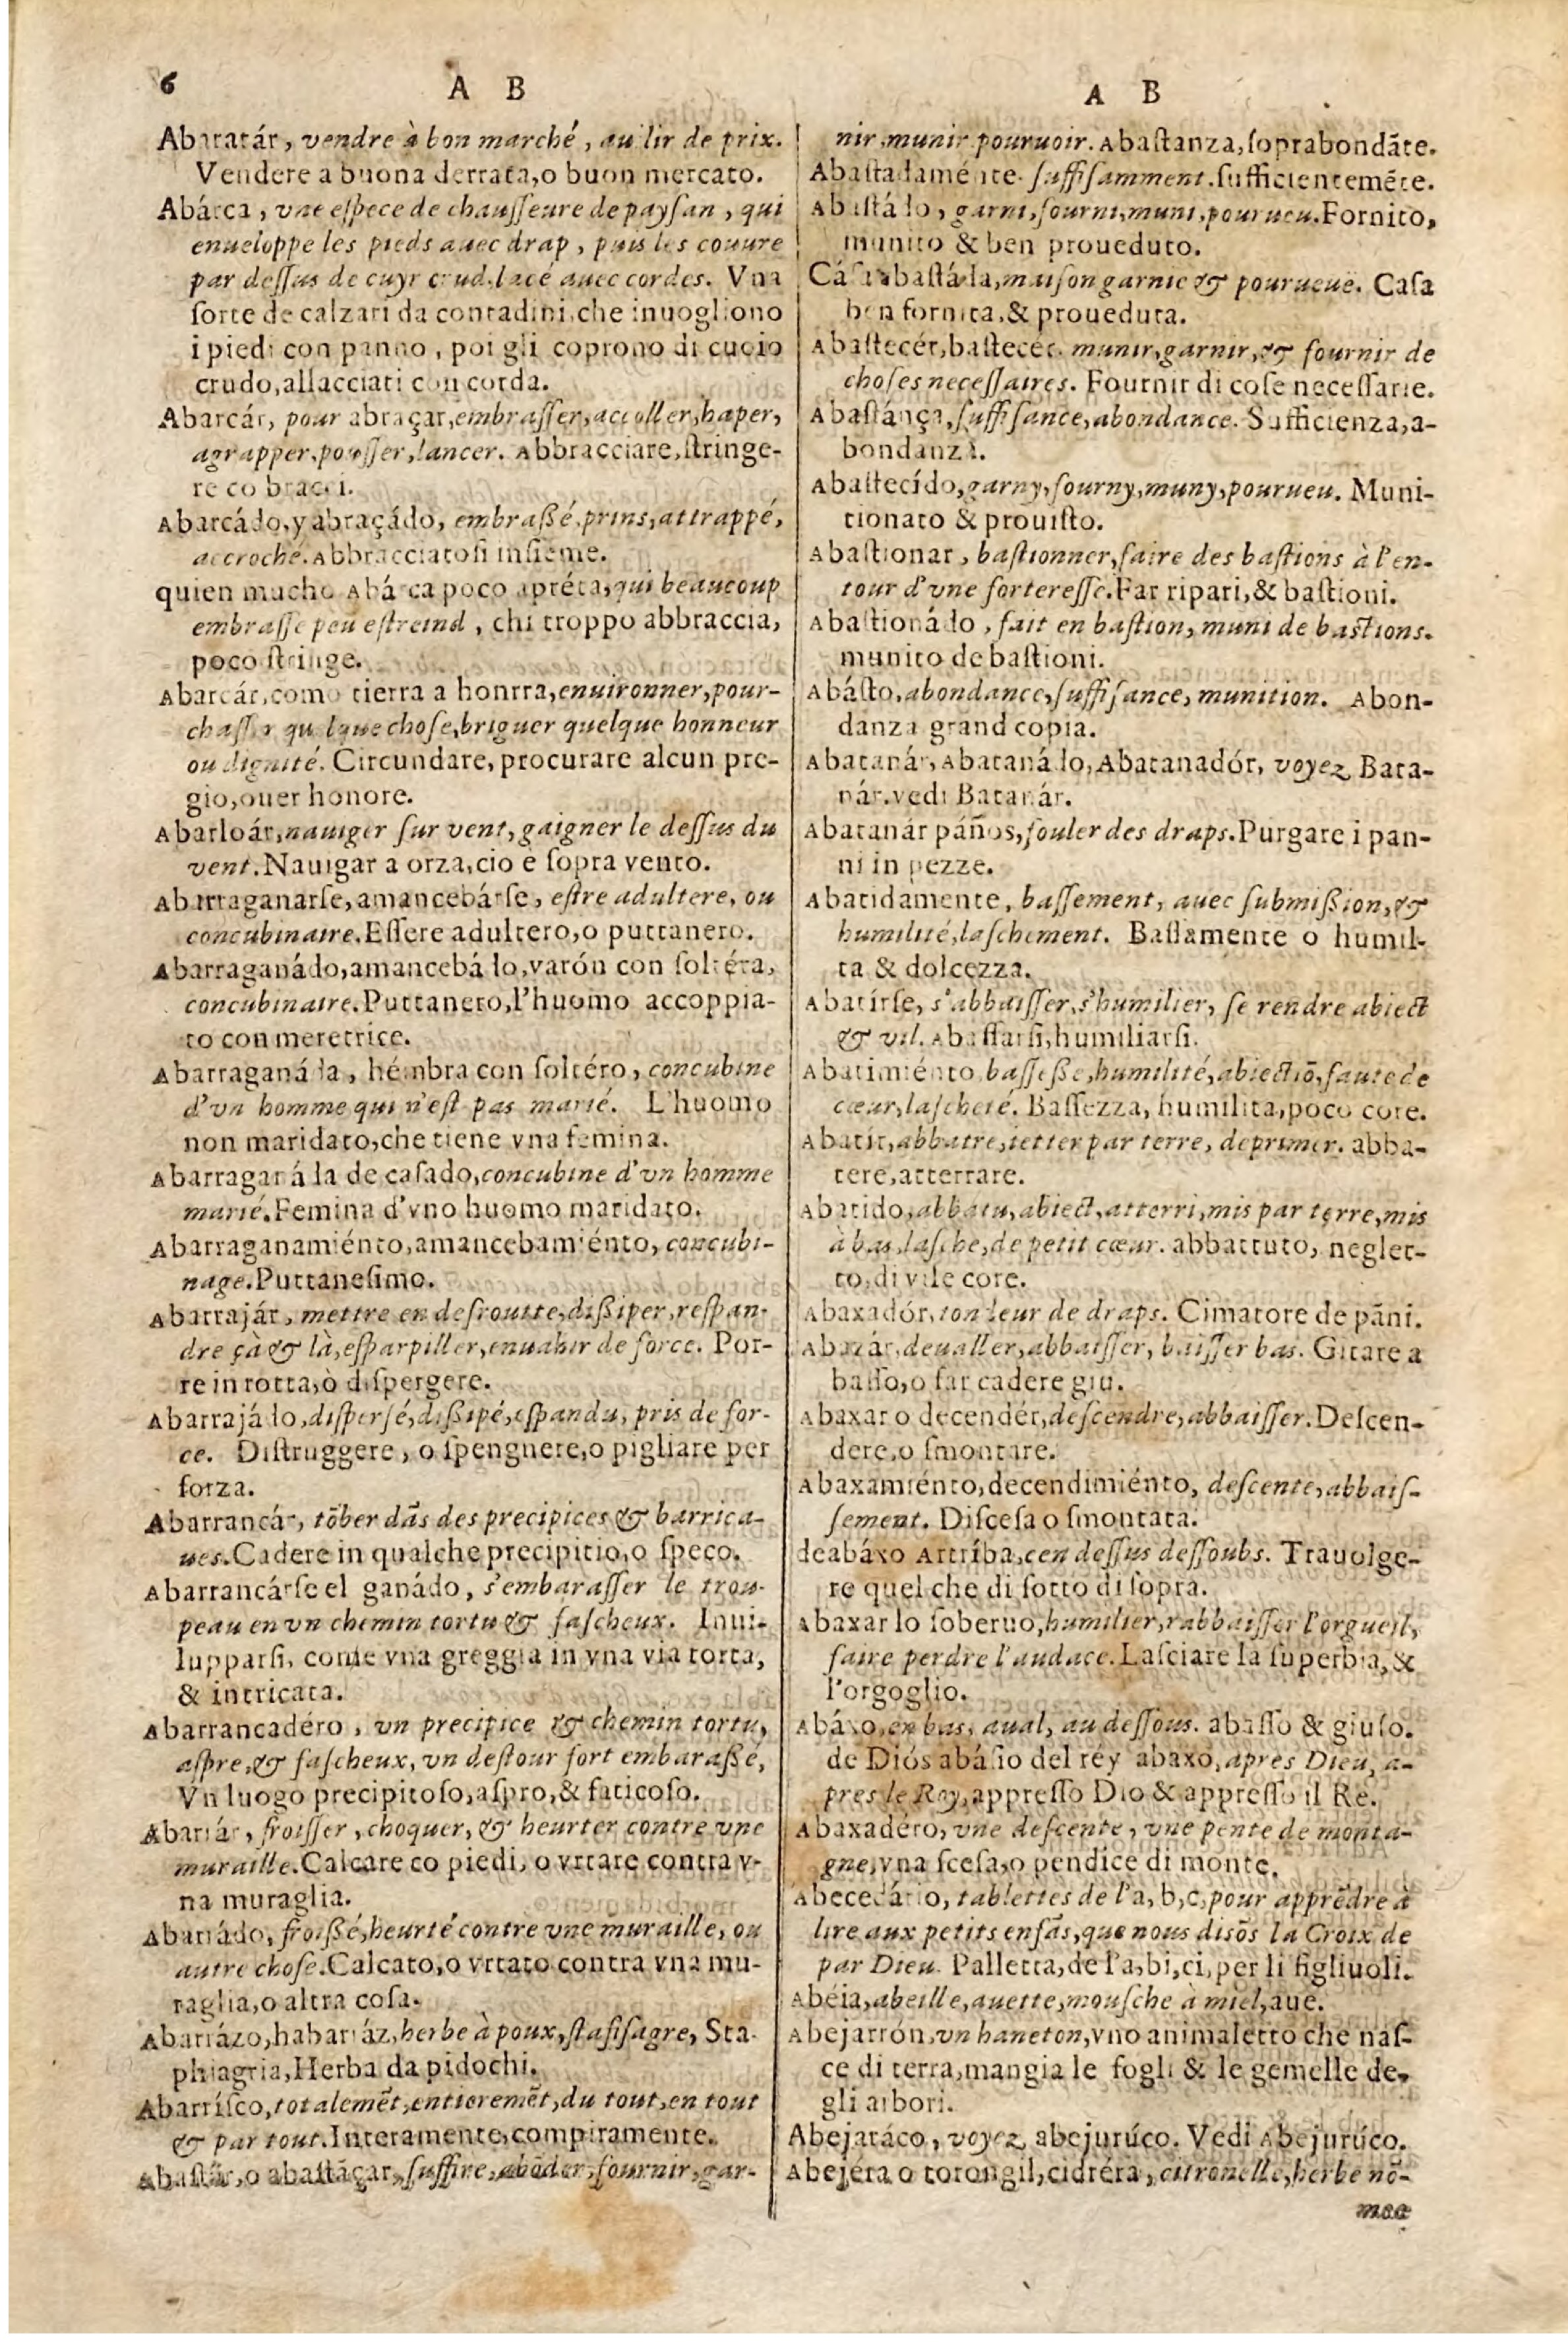 6
A B
Abaratár, vendre à bon marché, au lir de prix.
Vendere a buona derrata,o buon mercato.
Abárca, vne espece de chausseure de paysan, qui
enueloppe les pieds auec drap, puis les couure
par dessus de cuyr crud,lacé auec cordes. Vna
sorte de calzari da contadini,che inuogliono
i piedi con panno, poi gli coprono di cuoio
crudo,allacciati con corda.
Abarcár, pour abraçar,embrasser,accoller,haper,
agrapper,pousser,lancer. Abbracciare,stringe-
re co bracci.
Abarcádo,y abraçádo, embraßé,prins,attrappé,
accroché.Abbracciatosi insieme.
quien mucho Abárca poco apréta,qui beaucoup
embrasse peu estreind, chi troppo abbraccia,
poco stringe.
Abarcár,como tierra a honrra,enuironner,pour-
chasser quelque chose,briguer quelque honneur
ou dignité. Circundare, procurare alcun pre-
gio,ouer honore.
Abarloár,nauiger sur vent,gaigner le dessus du
vent.Nauigar a orza,cio e sopra vento.
Abarraganarse,amancebárse, estre adultere, ou
concubinaire.Essere adultero,o puttanero.
Abarraganádo,amancebádo,varón con soltéra,
concubinaire.Puttanero,l'huomo accoppia-
to con meretrice.
Abarraganáda, hémbra con soltéro, concubine
d'vn homme qui n'est pas marié. L'huomo
non maridato,che tiene vna femina.
Abarraganáda de casado,concubine d'vn homme
marié.Femina d'vno huomo maridato.
Abarraganamiénto,amancebamiénto, concubi-
nage.Puttanesimo.
Abarrajár, mettre en desroutte,dißiper,respan-
dre çà & là,esparpiller,enuahir de force. Por-
re in rotta,ò dispergere.
Abarrajádo,dispersé,dißipé,espandu, pris de for-
ce. Distruggere, o spengnere,o pigliare per
forza.
Abarrancár, tõber dãs des precipices & barrica-
ues.Cadere in qualche precipitio,o speco.
Abarrancárse el ganádo, s'embarasser le trou-
peau en vn chemin tortu & fascheux. Inui-
lupparsi, come vna greggia in vna via torta,
& intricata.
Abarrancadéro, vn precipice & chemin tortu,
aspre,& fascheux, vn destour fort embaraßé,
Vn luogo precipitoso,aspro,& faticoso.
Abarrár, froisser, choquer, & heurter contre vne
muraille.Calcare co piedi, o vrtare contra v-
na muraglia.
Abarrádo, froißé,heurté contre vne muraille, ou
autre chose.Calcato,o vrtato contra vna mu-
raglia,o altra cosa.
Abarrázo,habarráz,herbe à poux,stafisagre, Sta-
phiagria,Herba da pidochi.
Abarrísco,totalemẽt,entieremẽt,du tout,en tout
& par tout.Interamente,compiramente.
Abastár,o abastãçar,suffire,abõder,fournir,gar-
A B
nir,munir pouruoir.Abastanza,soprabondãte.
Abastadaménte suffisamment.sufficientemẽte.
Abastádo, garni,fourni,muni,pourueu.Fornito,
munito & ben proueduto.
Cása abastáda,maison garnie & pourueue. Casa
ben fornita,& proueduta.
Abastecér,bastecér. munir,garnir,& fournir de
choses necessaires. Fournir di cose necessarie.
Abastánça,suffisance,abondance. Sufficienza,a-
bondanza.
Abastecído,garny,fourny,muny,pourueu. Muni-
tionato & prouisto.
Abastionar, bastionner,faire des bastions à l'en-
tour d'vne forteresse.Far ripari,& bastioni.
Abastionádo, fait en bastion, muni de bastions.
munito de bastioni.
Abásto,abondance,suffisance, munition. Abon-
danza grand copia.
Abatanár,Abatanádo,Abatanadór, voyez Bata-
nár.vedi Batanár.
Abatanár páños,fouler des draps.Purgare i pan-
ni in pezze.
Abatidamente, bassement, auec submißion,&
humilité,laschement. Bassamente o humil-
ta & dolcezza.
Abatírse, s'abbaisser,s'humilier, se rendre abiect
& vil. Abassarsi,humiliarsi.
Abatimiénto basseße,humilité,abiectiõ,faute de
cœur,lascheté. Bassezza, humilita,poco core.
Abatír,abbatre,ietter par terre, deprimer. abba-
tere,atterrare.
Abatido,abbatu,abiect,atterri,mis par terre,mis
à bas,lasche,de petit cœur. abbattuto, neglet-
to,di vile core.
Abaxadór,tondeur de draps. Cimatore de pãni.
Abaxár,deualler,abbaisser, baisser bas. Gitare a
basso,o far cadere giu.
Abaxar o decendér,descendre,abbaisser.Descen-
dere,o smontare.
Abaxamiénto,decendimiénto, descente,abbais-
sement. Discesa o smontata.
deabáxo Arríba,cen dessus dessoubs. Trauolge-
re quel che di sotto di sopra.
Abaxar lo soberuo,humilier,rabbaisser l'orgueil,
faire perdre l'audace.Lasciare la superbia,&
l'orgoglio.
Abáxo,en bas, aual, au dessous. abasso & giuso.
de Diós abáxo del réy abaxo,apres Dieu, a-
pres le Roy,appresso Dio & appresso il Re.
Abaxadéro, vne descente, vne pente de monta-
gne,vna scesa,o pendice di monte.
Abecedário, tablettes de l'a, b,c,pour apprẽdre à
lire aux petits enfãs,que nous disõs la Croix de
par Dieu. Palletta,de l'a,bi,ci,per li figliuoli.
Abéia,abeille,auette,mousche à miel,aue.
Abejarrón,vn haneton,vno animaletto che nas-
ce di terra,mangia le fogli & le gemelle de-
gli arbori.
Abejaráco, voyez abejurúco. Vedi Abejurúco.
Abejéra o torongil,cidréra, citronelle,herbe nõ-
mee